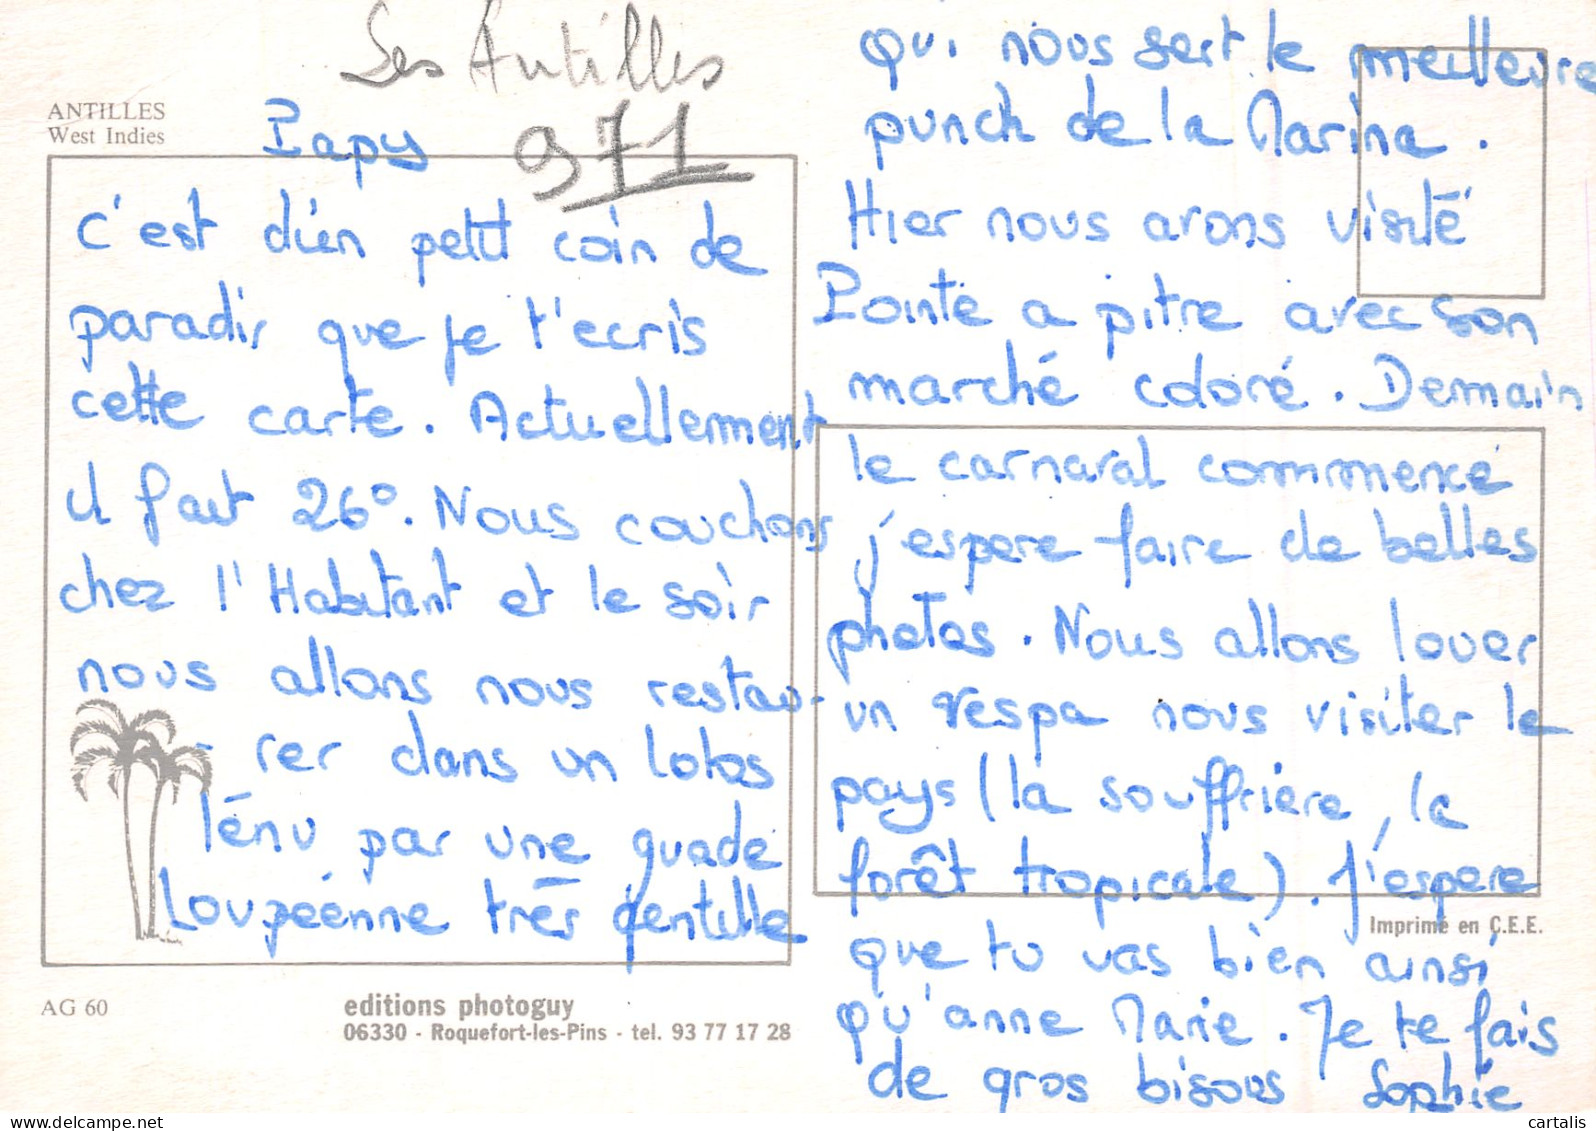 Les Antilles
971
ANTILLES
West Indies
Papy
c'est d'un petit coin de
paradis que je t'ecris
cette carte. Actuellement
il fait 26°. Nous couchons
chez l'Habitant et le soir
nous allons nous restau-
-rer dans un lolos
ténu par une guade
Loupéenne très gentille
qui nous sert le meilleure
punch de la Marina.
Hier nous avons visité
Pointe a pitre avec son
marché coloré. Demain
le carnaval commence
j'espere faire de belles
photos. Nous allons louer
un vespa nous visiter le
pays (la souffriere, la
forêt tropicale). J'espere
que tu vas bien ainsi
qu'anne Marie. Je te fais
de gros bisous Sophie
Imprimé en C.E.E.
AG 60
editions photoguy
06330 - Roquefort-les-Pins - tel. 93 77 17 28
cartalis